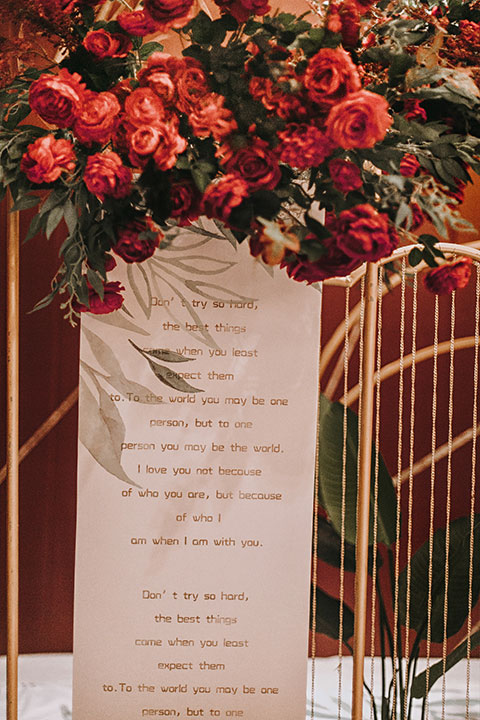 Don't try so hard,
the best things
come when you least
expect them
to.To the world you may be one
person, but to one
person you may be the world.
I love you not because
of who you are, but because
of who I
am when I am with you.
Don't try so hard,
the best things
come when you least
expect them
to.To the world you may be one
person, but to one